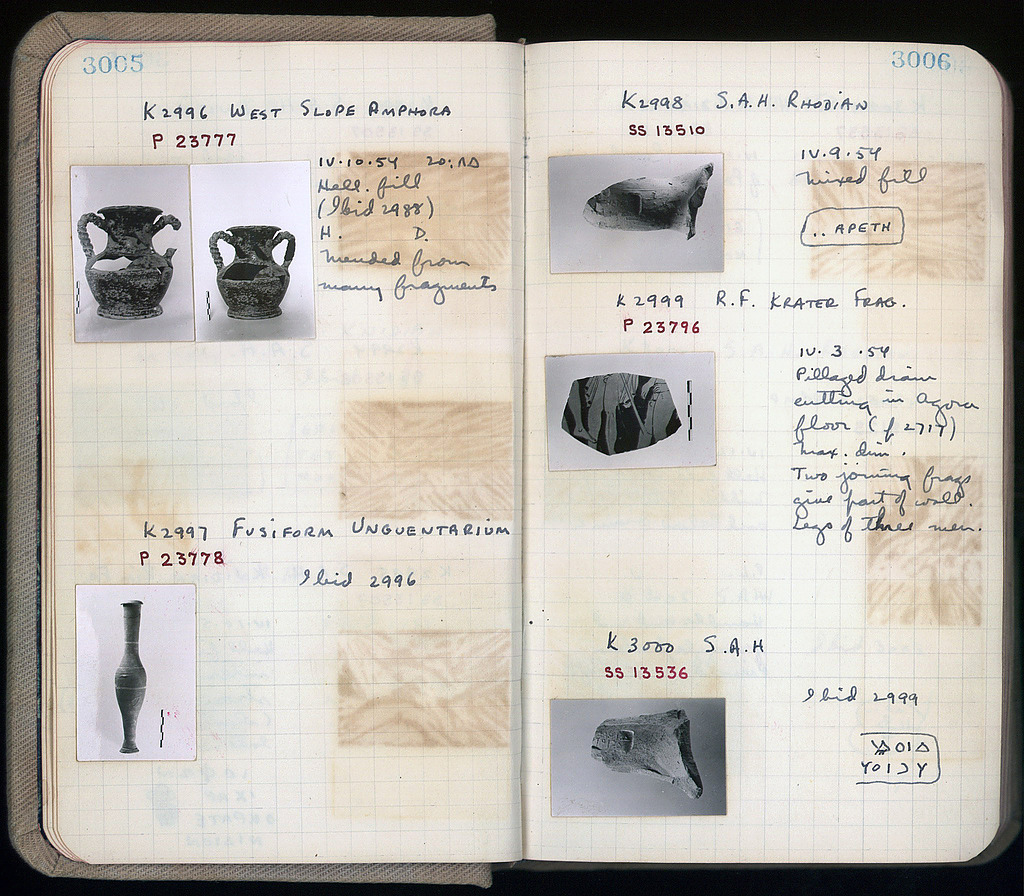 3005
K2996 WEST SLOPE AMPHORA
P 23777
IV.10.54 20:ΛΔ
Hell. fill
(Ibid 2988)
H. D.
Mended from
many fragments
K2997 FUSIFORM UNGUENTARIUM
P 23778
Ibid 2996
3006
K2998 S.A.H. RHODIAN
SS 13510
IV.9.54
Mixed fill
.. APETH
K2999 R.F. KRATER FRAG.
P 23796
IV. 3 .54
Pillaged drain
cutting in Agora
floor (f 2717)
Max. dim.
Two joining frags
give part of wall.
Legs of three men.
K 3000 S.A.H
SS 13536
Ibid 2999